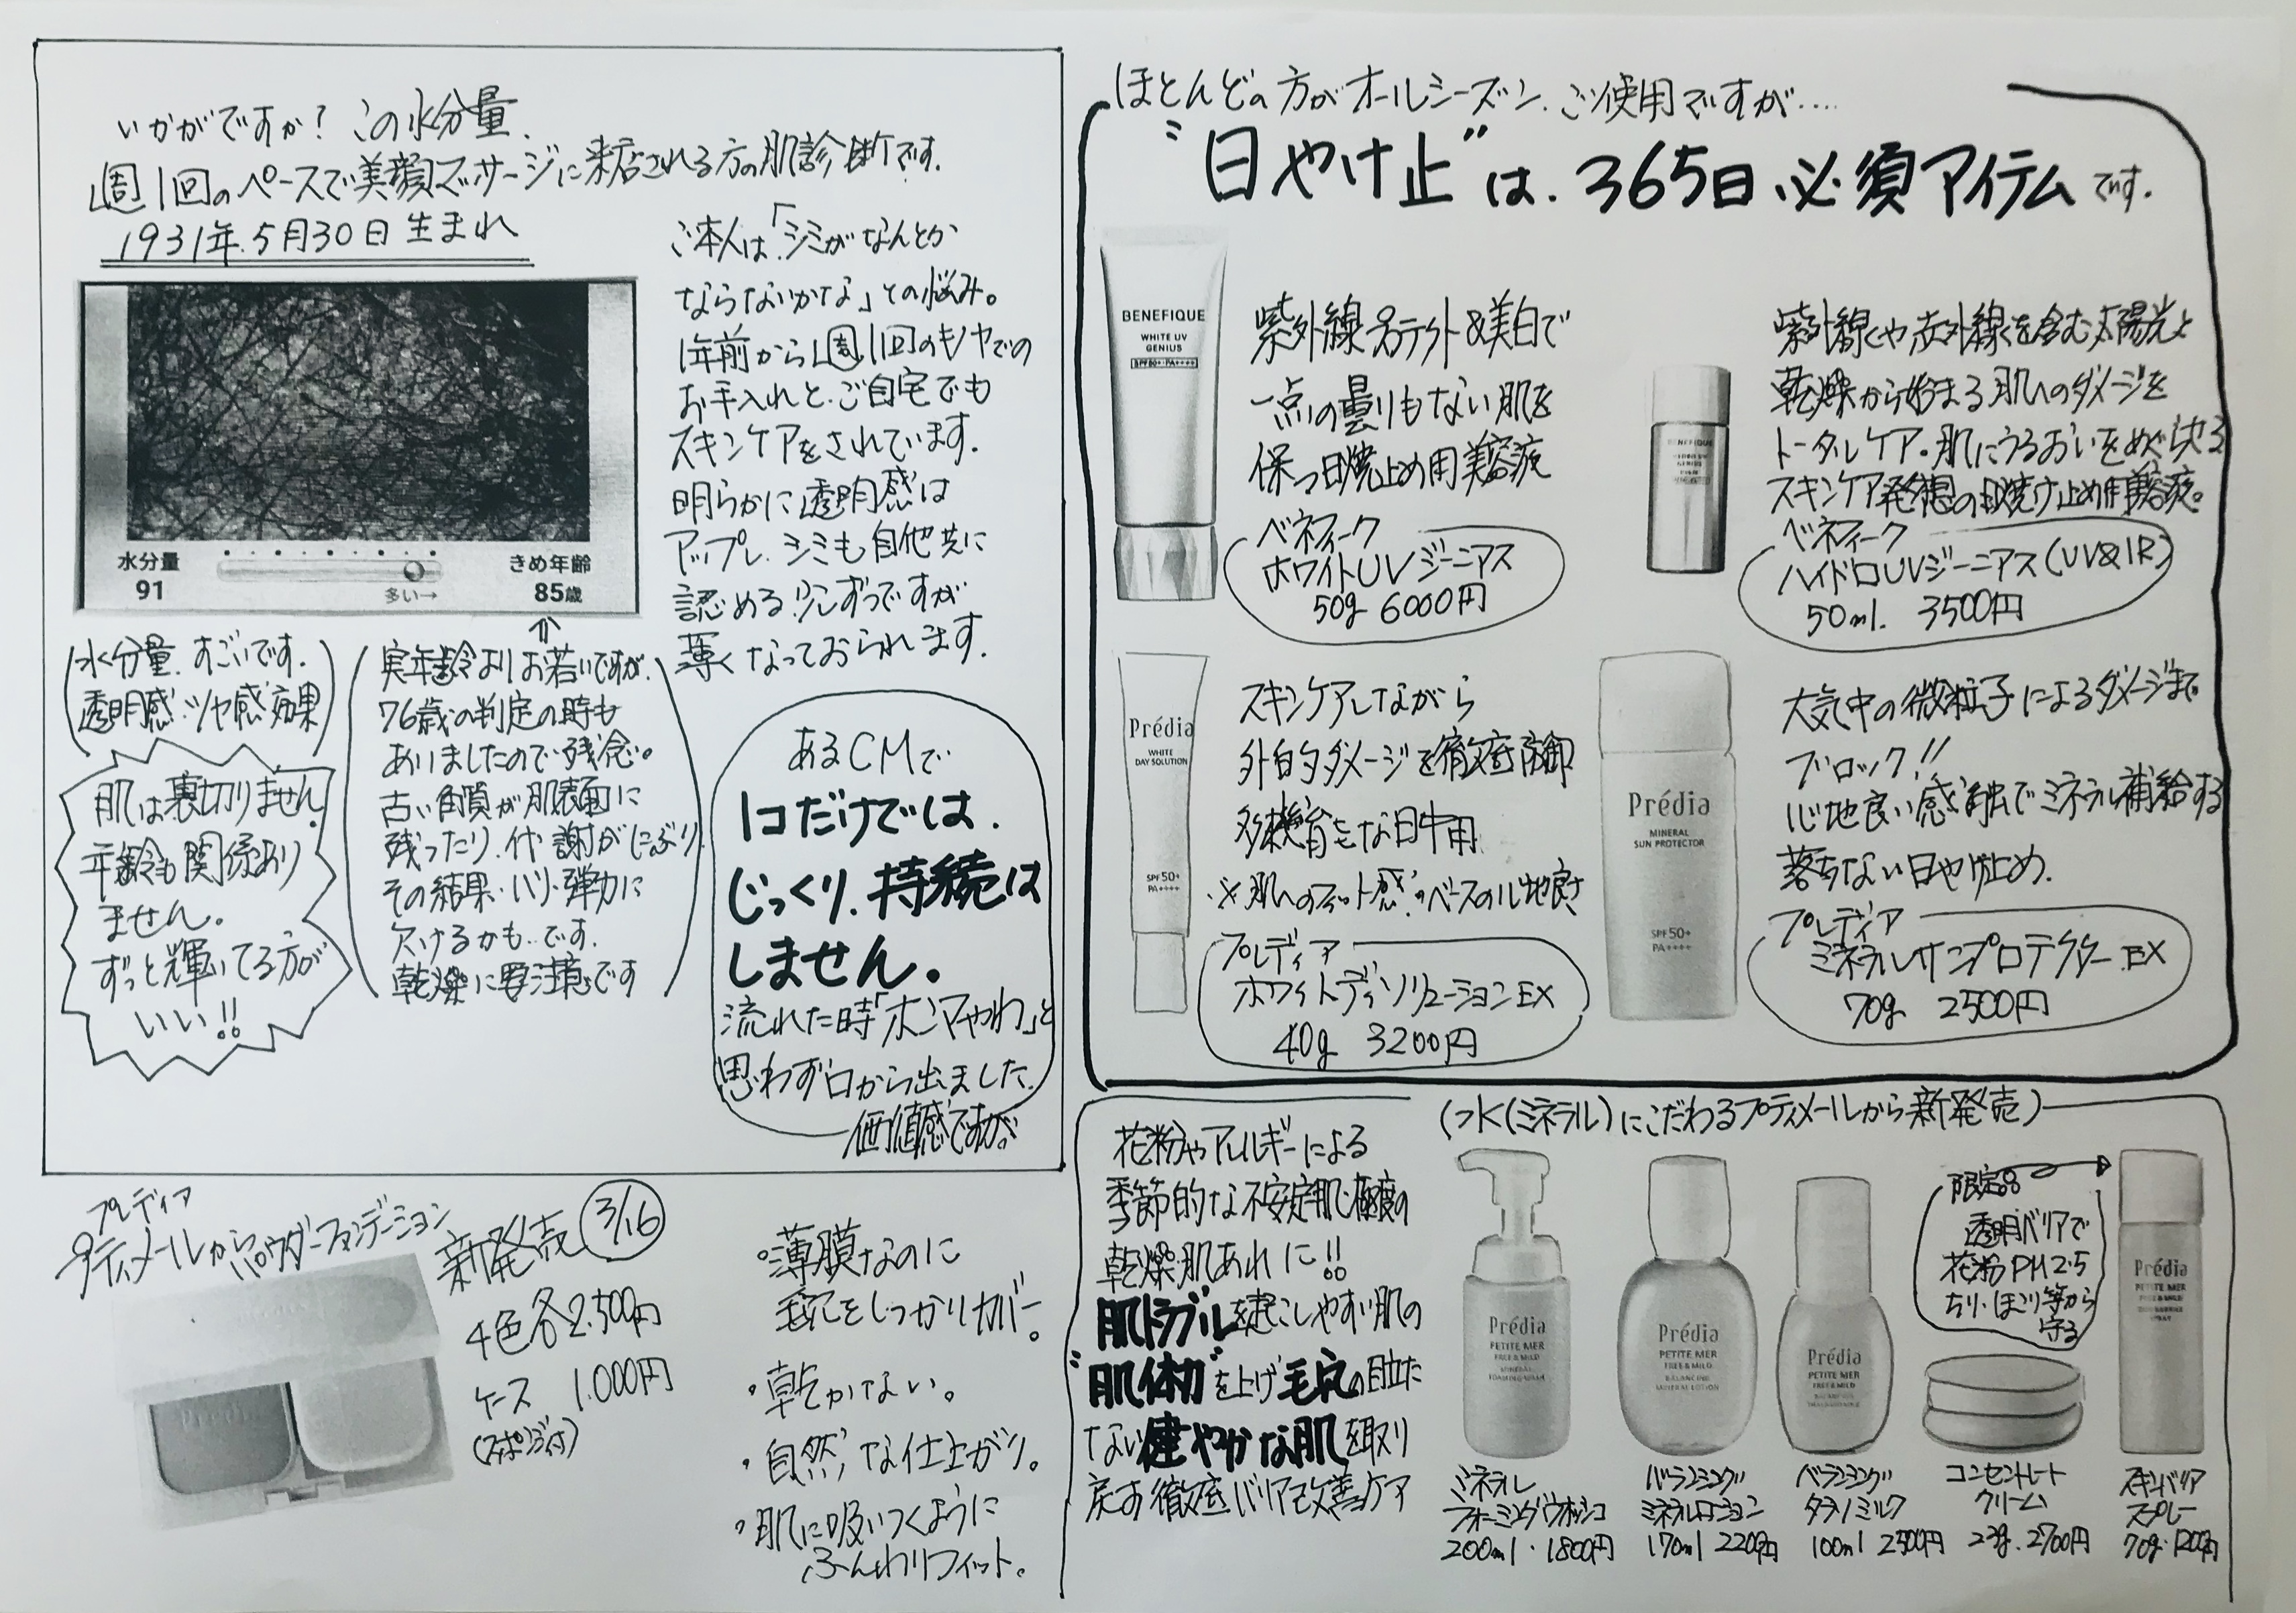 いかがですか？この水分量.
週1回のペースで美顔マッサージに来店される方の肌診断です.
1931年.5月30日生まれ
水分量
91
多い→
きめ年齢
85歳
水分量.すごいです.
透明感.ツヤ感効果
肌は裏切りません.
年齢も関係あり
ません.
ずっと輝いてる方が
いい!!
実年齢よりお若いですが.
76歳の判定の時も
ありましたので残念。
古い角質が肌表面に
残ったり.代謝がにぶり
その結果.ハリ・弾力に
欠けるかも..です.
乾燥に要注意です
ご本人は「シミがなんとか
ならないかな」との悩み。
1年前から週1回のモノヤでの
お手入れと.ご自宅でも
スキンケアをされています.
明らかに透明感は
アップし.シミも自他共に
認める.少しずつですが
薄くなっておられます.
あるCMで
1コだけでは.
じっくり.持続は
しません。
流れた時「ホンマやわ」と
思わず口から出ました.
価値感ですが..
プレディア
プティメールからパウダーファンデーション
新発売 3/16
4色各2.500円
ケース 1.000円
(スポンジ付)
Prédia
・薄膜なのに
毛穴をしっかりカバー。
・乾かない。
・自然な仕上がり。
・肌に吸いつくように
ふんわりフィット。
ほとんどの方がオールシーズン.ご使用ですが....
"日やけ止"は.365日必須アイテムです.
BENEFIQUE
WHITE UV
GENIUS
SPF50+・PA++++
紫外線プロテクト&美白で
一点の曇りもない肌を
保つ日焼止め用美容液
ベネフィーク
ホワイトUVジーニアス
50g 6000円
BENEFIQUE
HYDRO UV
GENIUS
紫外線や赤外線を含む太陽光と
乾燥から始まる肌へのダメージを
トータルケア.肌にうるおいをめぐらせる
スキンケア発想の日焼け止め用美容液。
ベネフィーク
ハイドロUVジーニアス(UV&IR)
50ml. 3500円
Prédia
WHITE
DAY SOLUTION
SPF50+
PA++++
スキンケアしながら
外的ダメージを徹底防御
多機能な日中用
※肌へのフィット感.ベースの心地良さ
プレディア
ホワイトデイソリューションEX
40g 3200円
Prédia
MINERAL
SUN PROTECTOR
SPF50+
PA++++
大気中の微粒子によるダメージまで
ブロック!!
心地良い感触でミネラル補給する
落ちない日やけ止め.
プレディア
ミネラルサンプロテクターEX
70g 2500円
(水(ミネラル)にこだわるプティメールから新発売)
花粉やアレルギーによる
季節的な不安定肌.極度の
乾燥.肌あれに!!
肌トラブルを起こしやすい肌の
"肌体力"を上げ毛穴の目立た
ない健やかな肌を取り
戻す徹底バリア改善ケア
限定品
透明バリアで
花粉PM2.5
ちり・ほこり等から
守る
Prédia
PETITE MER
FREE & MILD
MINERAL
FOAMING WASH
Prédia
PETITE MER
FREE & MILD
BALANCING
MINERAL LOTION
Prédia
PETITE MER
FREE & MILD
Prédia
PETITE MER
FREE & MILD
ミネラル
フォーミングウォッシュ
200ml・1800円
バランシング
ミネラルローション
170ml 2200円
バランシング
タラソミルク
100ml 2500円
コンセントレート
クリーム
2700円
スキンバリア
スプレー
70g・1200円